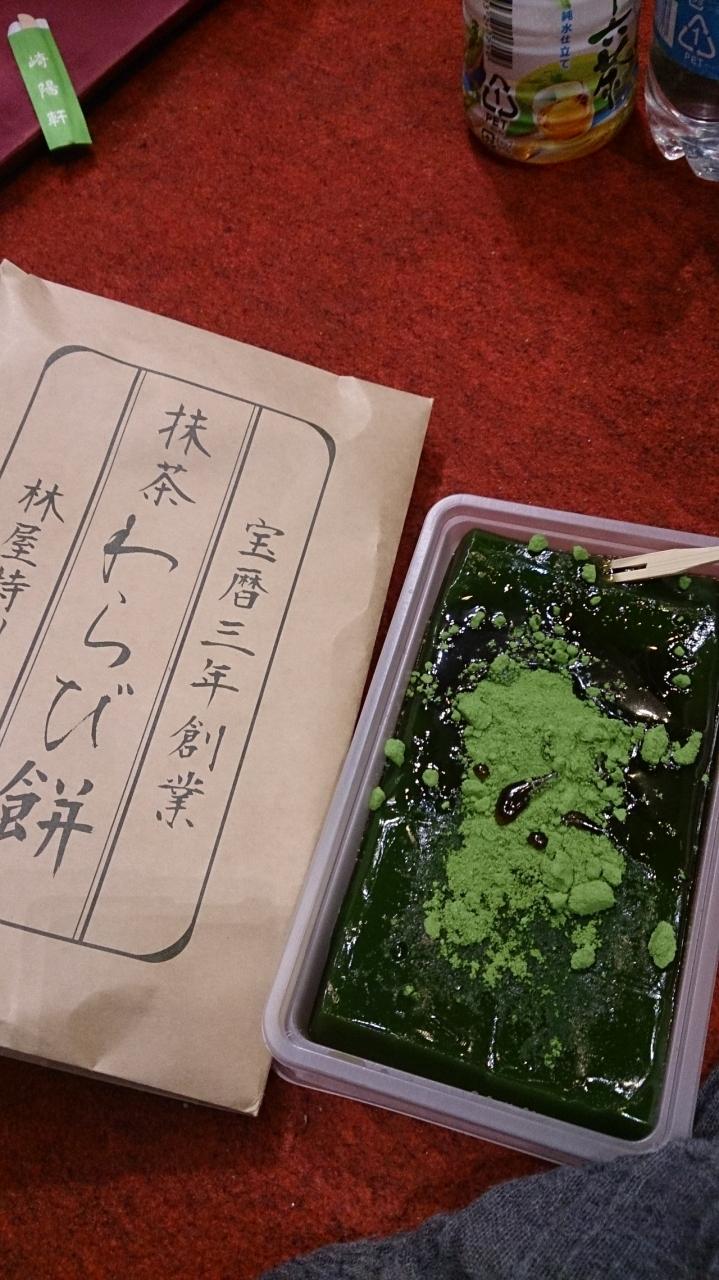 崎陽軒
純水仕立て
六茶
PET
PET
宝暦三年創業
抹茶わらび餅
林屋特